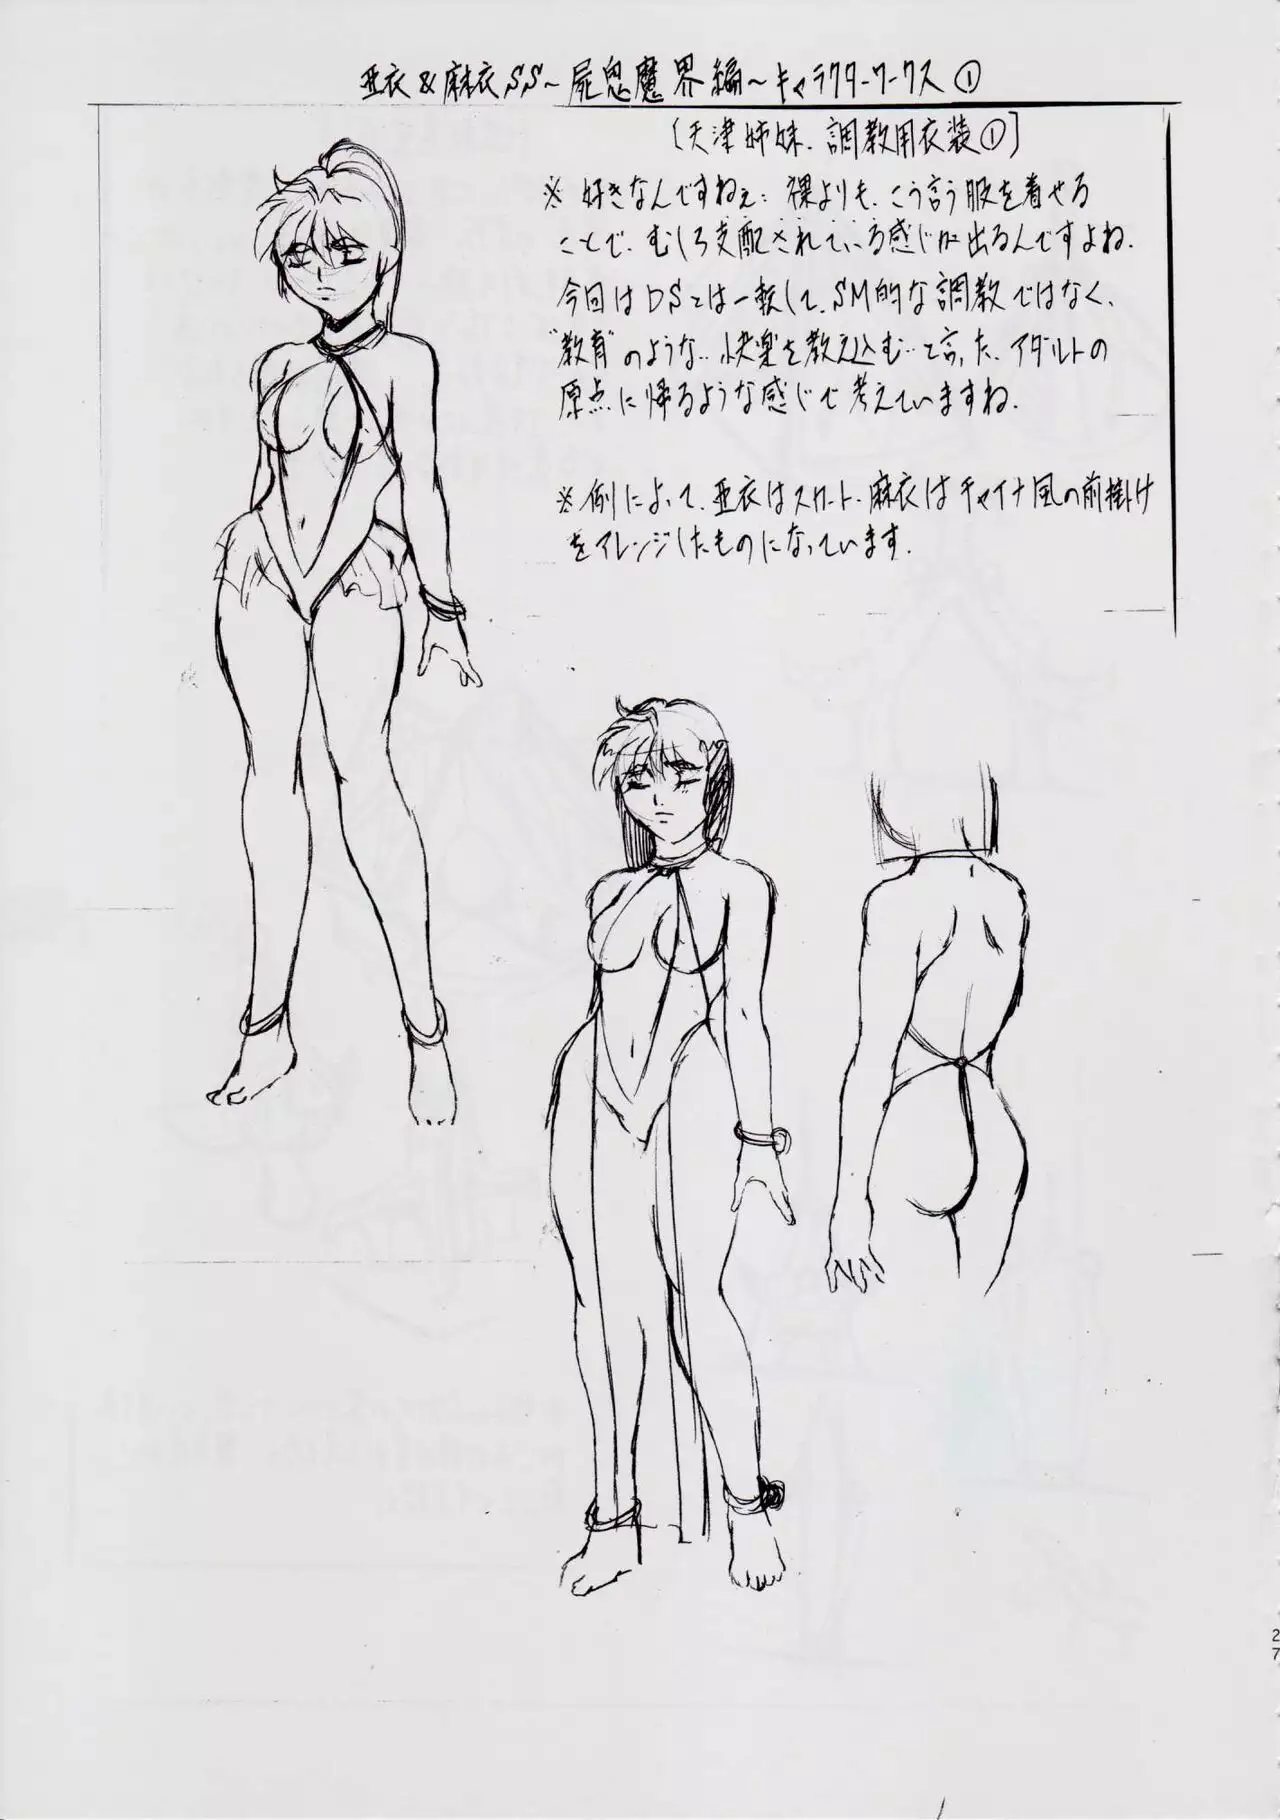 亜衣&麻衣SS~屍鬼魔界編~キャラクターワークス①
[天津姉妹.調教用衣装①]
※ 好きなんですねぇ… 裸よりも、こう言う服を着せる
ことで、むしろ支配されている感じが出るんですよね.
今回はDSとは一転して、SM的な調教ではなく、
"教育"のような… 快楽を教え込む…と言った、アダルトの
原点に帰るような感じで考えていますね.
※ 例によって、亜衣はスカート、麻衣はチャイナ風の前掛け
をアレンジしたものになっています.
27